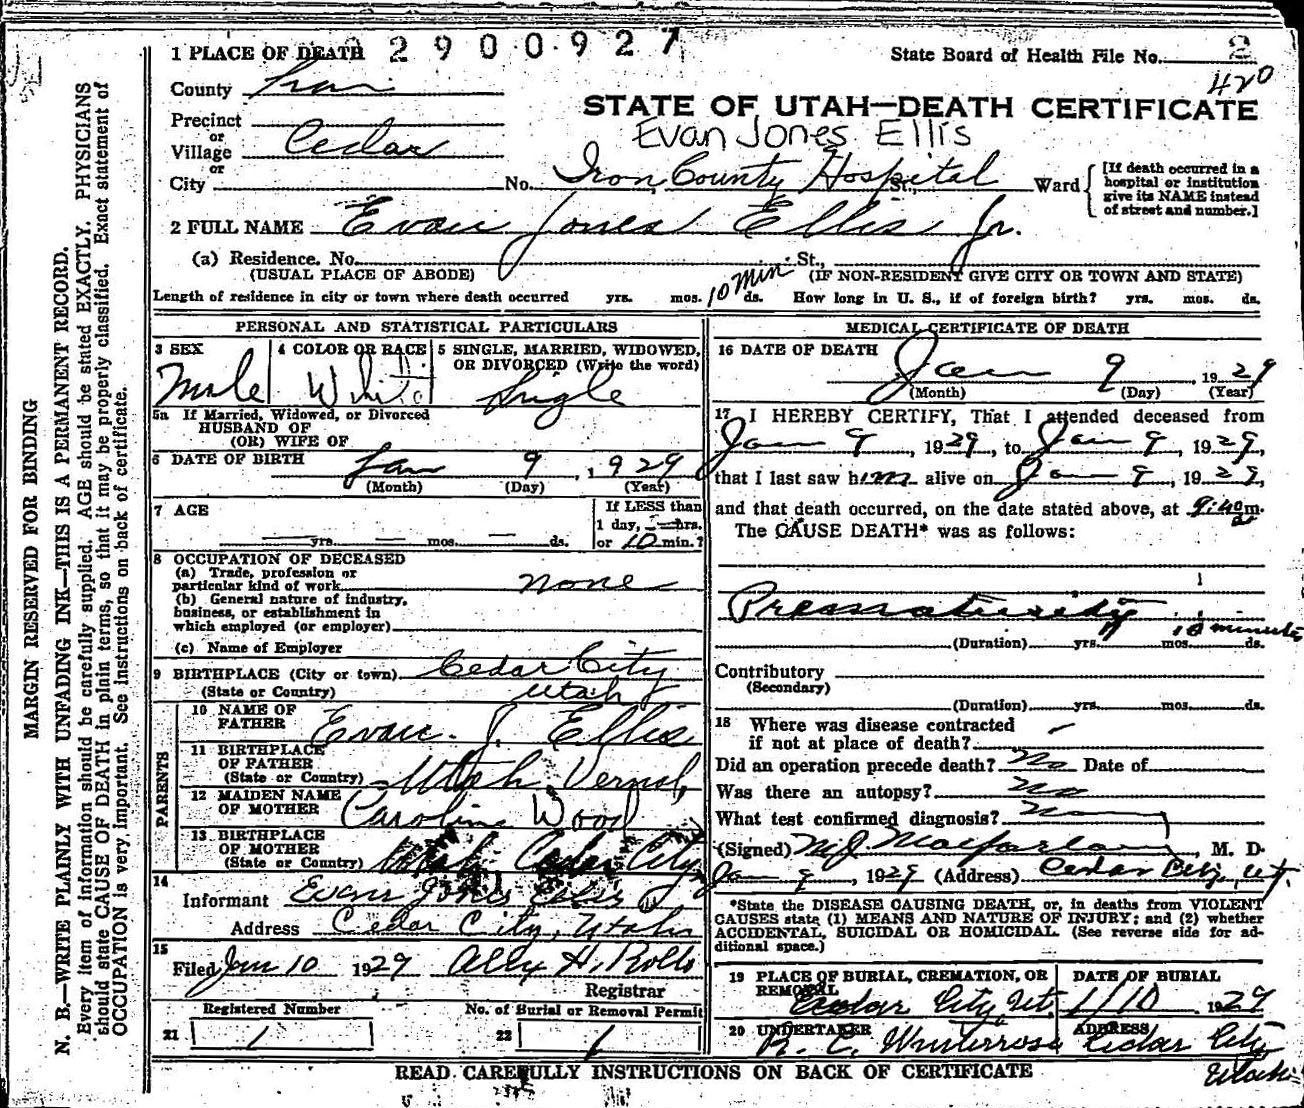 2900927
1 PLACE OF DEATH
State Board of Health File No. 2
420
County Iron
STATE OF UTAH—DEATH CERTIFICATE
Precinct
or
Village Cedar
or
Evan Jones Ellis
City No. Iron County Hospital St., Ward
[If death occurred in a
hospital or institution
give its NAME instead
of street and number.]
2 FULL NAME Evan Jones Ellis Jr.
(a) Residence. No. St.,
(USUAL PLACE OF ABODE) (IF NON-RESIDENT GIVE CITY OR TOWN AND STATE)
Length of residence in city or town where death occurred yrs. mos. 10 Min. ds. How long in U. S., if of foreign birth? yrs. mos. ds.
PERSONAL AND STATISTICAL PARTICULARS
3 SEX
Male
4 COLOR OR RACE
White
5 SINGLE, MARRIED, WIDOWED,
OR DIVORCED (Write the word)
Single
5a If Married, Widowed, or Divorced
HUSBAND OF
(OR) WIFE OF
6 DATE OF BIRTH Jan 9, 1929
(Month) (Day) (Year)
7 AGE
— yrs. — mos. — ds.
If LESS than
1 day, — hrs.
or 10 min.?
8 OCCUPATION OF DECEASED
(a) Trade, profession or
particular kind of work none
(b) General nature of industry,
business, or establishment in
which employed (or employer)
(c) Name of Employer
9 BIRTHPLACE (City or town) Cedar City
(State or Country) Utah
PARENTS
10 NAME OF
FATHER Evan J. Ellis
11 BIRTHPLACE
OF FATHER
(State or Country) Utah Vernal,
12 MAIDEN NAME
OF MOTHER Caroline Wood
13 BIRTHPLACE
OF MOTHER
(State or Country) Utah Cedar City
14
Informant Evan Jones Ellis
Address Cedar City, Utah
15
Filed Jan 10 1929
Registrar
Registered Number
21 1
No. of Burial or Removal Permit
22 1
MEDICAL CERTIFICATE OF DEATH
16 DATE OF DEATH
Jan 9, 1929
(Month) (Day) (Year)
17 I HEREBY CERTIFY, That I attended deceased from
Jan 9, 1929, to Jan 9 1929,
that I last saw him alive on Jan 9, 1929,
and that death occurred, on the date stated above, at 9:40 a m.
The CAUSE DEATH* was as follows:
Prematurity 10 minutes
(Duration) yrs. mos. ds.
Contributory
(Secondary)
(Duration) yrs. mos. ds.
18 Where was disease contracted
if not at place of death?
Did an operation precede death? No Date of
Was there an autopsy? No
What test confirmed diagnosis?
(Signed) M J Macfarlane, M. D.
Jan 9, 1929 (Address) Cedar City, Ut.
*State the DISEASE CAUSING DEATH, or, in deaths from VIOLENT
CAUSES state (1) MEANS AND NATURE OF INJURY; and (2) whether
ACCIDENTAL, SUICIDAL OR HOMICIDAL. (See reverse side for ad-
ditional space.)
19 PLACE OF BURIAL, CREMATION, OR
REMOVAL
Cedar City, Ut.
DATE OF BURIAL
1/10 1929
20 UNDERTAKER
ADDRESS
Cedar City
Utah
READ CAREFULLY INSTRUCTIONS ON BACK OF CERTIFICATE
MARGIN RESERVED FOR BINDING
N. B.—WRITE PLAINLY WITH UNFADING INK—THIS IS A PERMANENT RECORD.
Every item of information should be carefully supplied. AGE should be stated EXACTLY. PHYSICIANS
should state CAUSE OF DEATH in plain terms, so that it may be properly classified. Exact statement of
OCCUPATION is very important. See instructions on back of certificate.